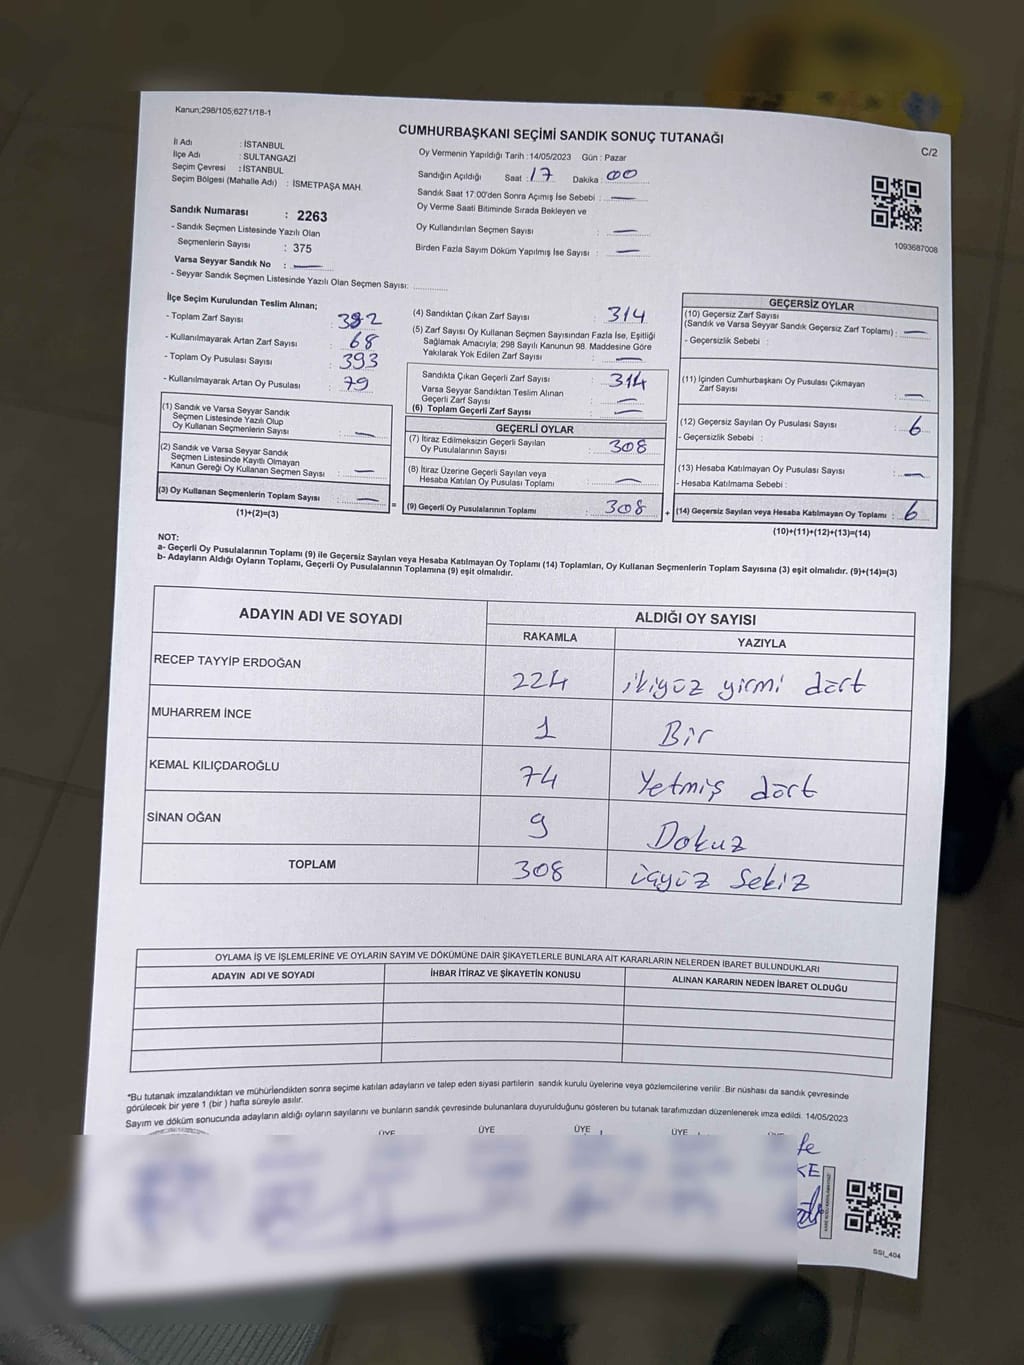 Kanun;298/105;6271/18-1
CUMHURBAŞKANI SEÇİMİ SANDIK SONUÇ TUTANAĞI
C/2
İl Adı : İSTANBUL
İlçe Adı : SULTANGAZİ
Seçim Çevresi : İSTANBUL
Seçim Bölgesi (Mahalle Adı) : İSMETPAŞA MAH.
Sandık Numarası : 2263
- Sandık Seçmen Listesinde Yazılı Olan
Seçmenlerin Sayısı : 375
Varsa Seyyar Sandık No : —
- Seyyar Sandık Seçmen Listesinde Yazılı Olan Seçmen Sayısı:
Oy Vermenin Yapıldığı Tarih :14/05/2023 Gün : Pazar
Sandığın Açıldığı Saat : 17 Dakika : 00
Sandık Saat 17:00'den Sonra Açımış İse Sebebi : —
Oy Verme Saati Bitiminde Sırada Bekleyen ve
Oy Kullandırılan Seçmen Sayısı : —
Birden Fazla Sayım Döküm Yapılmış İse Sayısı : —
1093687008
İlçe Seçim Kurulundan Teslim Alınan;
- Toplam Zarf Sayısı : 382
- Kullanılmayarak Artan Zarf Sayısı : 68
- Toplam Oy Pusulası Sayısı : 393
- Kullanılmayarak Artan Oy Pusulası : 79
(1) Sandık ve Varsa Seyyar Sandık
Seçmen Listesinde Yazılı Olup
Oy Kullanan Seçmenlerin Sayısı : —
(2) Sandık ve Varsa Seyyar Sandık
Seçmen Listesinde Kayıtlı Olmayan
Kanun Gereği Oy Kullanan Seçmen Sayısı : —
(3) Oy Kullanan Seçmenlerin Toplam Sayısı : —
(1)+(2)=(3)
=
(4) Sandıktan Çıkan Zarf Sayısı : 314
(5) Zarf Sayısı Oy Kullanan Seçmen Sayısından Fazla İse, Eşitliği
Sağlamak Amacıyla; 298 Sayılı Kanunun 98. Maddesine Göre
Yakılarak Yok Edilen Zarf Sayısı : —
Sandıkta Çıkan Geçerli Zarf Sayısı : 314
Varsa Seyyar Sandıktan Teslim Alınan
Geçerli Zarf Sayısı : —
(6) Toplam Geçerli Zarf Sayısı : —
GEÇERLİ OYLAR
(7) İtiraz Edilmeksizin Geçerli Sayılan
Oy Pusulalarının Sayısı : 308
(8) İtiraz Üzerine Geçerli Sayılan veya
Hesaba Katılan Oy Pusulası Toplamı : —
(9) Geçerli Oy Pusulalarının Toplamı : 308
+
GEÇERSİZ OYLAR
(10) Geçersiz Zarf Sayısı
(Sandık ve Varsa Seyyar Sandık Geçersiz Zarf Toplamı) : —
- Geçersizlik Sebebi :
(11) İçinden Cumhurbaşkanı Oy Pusulası Çıkmayan
Zarf Sayısı : —
(12) Geçersiz Sayılan Oy Pusulası Sayısı : 6
- Geçersizlik Sebebi :
(13) Hesaba Katılmayan Oy Pusulası Sayısı : —
- Hesaba Katılmama Sebebi :
(14) Geçersiz Sayılan veya Hesaba Katılmayan Oy Toplamı : 6
(10)+(11)+(12)+(13)=(14)
NOT:
a- Geçerli Oy Pusulalarının Toplamı (9) ile Geçersiz Sayılan veya Hesaba Katılmayan Oy Toplamı (14) Toplamları, Oy Kullanan Seçmenlerin Toplam Sayısına (3) eşit olmalıdır. (9)+(14)=(3)
b- Adayların Aldığı Oyların Toplamı, Geçerli Oy Pusulalarının Toplamına (9) eşit olmalıdır.
ADAYIN ADI VE SOYADI
ALDIĞI OY SAYISI
RAKAMLA YAZIYLA
RECEP TAYYİP ERDOĞAN 224 ikiyüz yirmi dört
MUHARREM İNCE 1 Bir
KEMAL KILIÇDAROĞLU 74 Yetmiş dört
SİNAN OĞAN 9 Dokuz
TOPLAM 308 üçyüz Sekiz
OYLAMA İŞ VE İŞLEMLERİNE VE OYLARIN SAYIM VE DÖKÜMÜNE DAİR ŞİKAYETLERLE BUNLARA AİT KARARLARIN NELERDEN İBARET BULUNDUKLARI
ADAYIN ADI VE SOYADI İHBAR İTİRAZ VE ŞİKAYETİN KONUSU ALINAN KARARIN NEDEN İBARET OLDUĞU
*Bu tutanak imzalandıktan ve mühürlendikten sonra seçime katılan adayların ve talep eden siyasi partilerin sandık kurulu üyelerine veya gözlemcilerine verilir .Bir nüshası da sandık çevresinde
görülecek bir yere 1 (bir ) hafta süreyle asılır.
Sayım ve döküm sonucunda adayların aldığı oyların sayılarını ve bunların sandık çevresinde bulunanlara duyurulduğunu gösteren bu tutanak tarafımızdan düzenlenerek imza edildi. 14/05/2023
ÜYE ÜYE ÜYE ÜYE
SSI_404